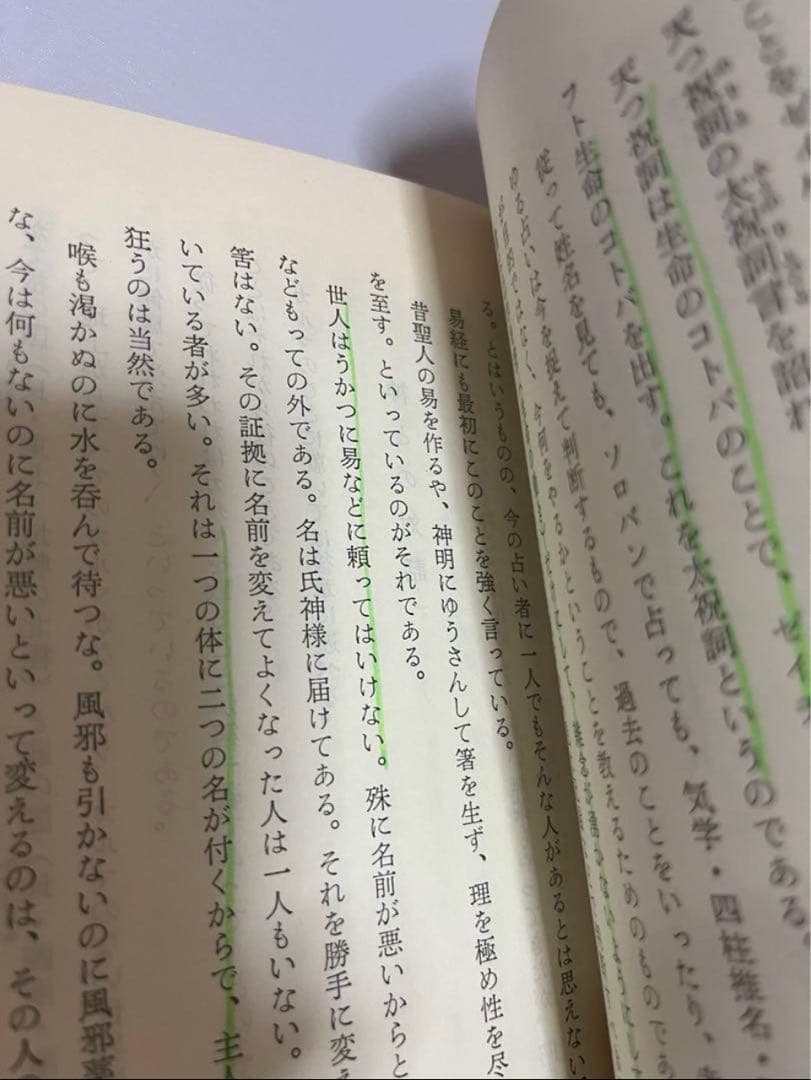 天つ祝詞の太祝詞言を詔れ
天つ祝詞は生命のコトバのことで、セイ
フト生命のコトバを出す。これを太祝詞というのである。
従って姓名を見ても、ソロバンで占っても、気学・四柱推名・
ゆる占いは今を捉えて判断するもので、過去のことをいったり、
ではなく、今何をやるかということを教えるためのもので
る。とはいうものの、今の占い者に一人でもそんな人があるとは思えない
易経にも最初にこのことを強く言っている。
昔聖人の易を作るや、神明にゆうさんして筮を生ず、理を極め性を尽
を至す。といっているのがそれである。
世人はうかつに易などに頼ってはいけない。殊に名前が悪いからと
などもっての外である。名は氏神様に届けてある。それを勝手に変え
筈はない。その証拠に名前を変えてよくなった人は一人もいない。
いている者が多い。それは一つの体に二つの名が付くからで、主
狂うのは当然である。
喉も渇かぬのに水を呑んで待つな。風邪も引かないのに風邪薬
な、今は何もないのに名前が悪いといって変えるのは、その人の